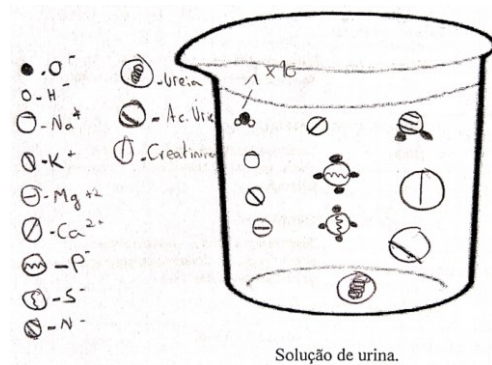 - O⁻
- H⁻
- Na⁺
- K⁺
- Mg⁺²
- Ca²⁺
- P⁻
- S⁻
- N⁻
- Ureia
- Ac. Úri
- Creatinina
x 96
Solução de urina.